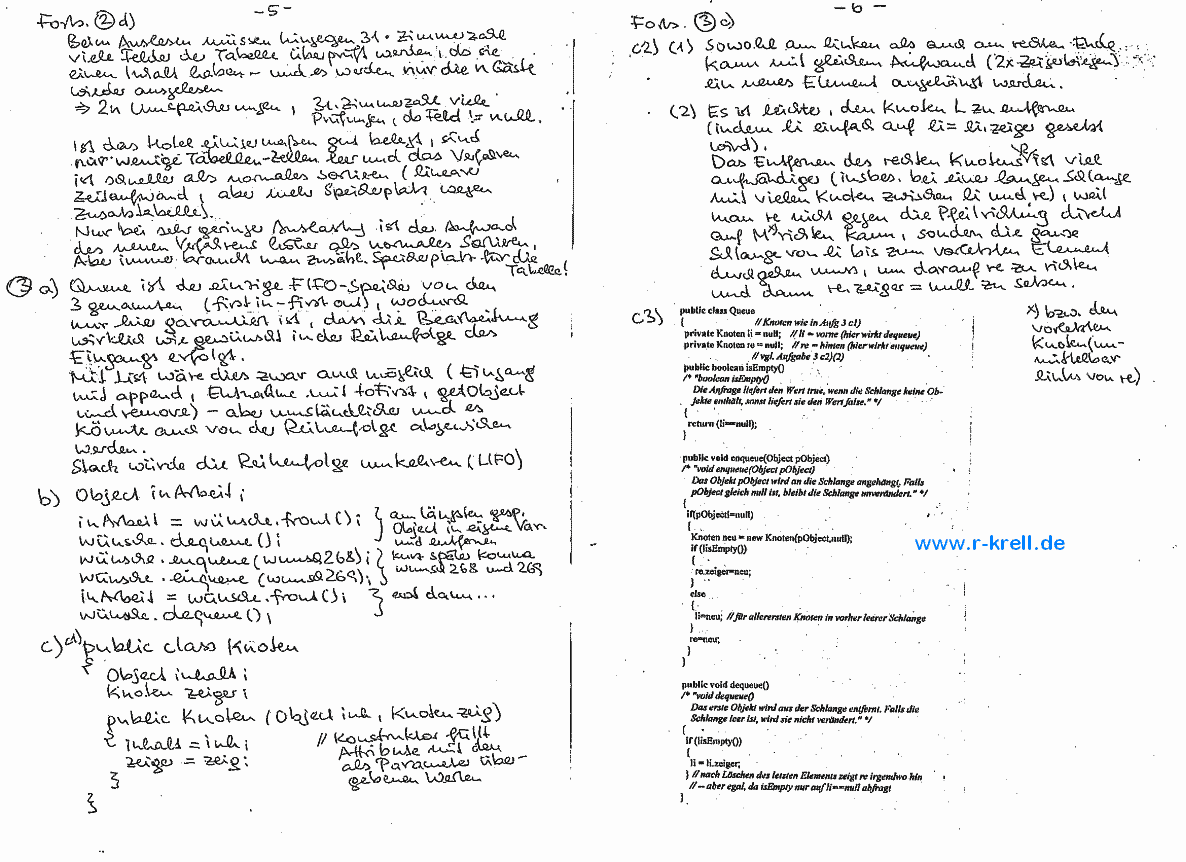 -5-
Forts. ② d)
Beim Auslesen müssen hingegen 31 · Zimmerzahl
viele Felder der Tabelle überprüft werden, ob sie
einen Inhalt haben – und es werden nur die n Gäste
wieder ausgelesen
⇒ 2n Umspeicherungen, 31·Zimmerzahl viele
Prüfungen, ob Feld != null.
Ist das Hotel einigermaßen gut belegt, sind
nur wenige Tabellen-Zellen leer und das Verfahren
ist schneller als normales Sortieren (linearer
Zeitaufwand, aber mehr Speicherplatz wegen
Zusatztabelle).
Nur bei sehr geringer Auslastung ist der Aufwand
des neuen Verfahrens höher als normales Sortieren.
Aber immer braucht man zusätzl. Speicherplatz für die
Tabelle!
③ a) Queue ist der einzige FIFO-Speicher von den
3 genannten (first in – first out), wodurch
nur hier garantiert ist, dass die Bearbeitung
wirklich wie gewünscht in der Reihenfolge des
Eingangs erfolgt.
Mit List wäre dies zwar auch möglich (Eingang
mit append, Entnahme mit toFirst, getObject
und remove) – aber umständlicher und es
könnte auch von der Reihenfolge abgewichen
werden.
Stack würde die Reihenfolge umkehren (LIFO)
b) Object inArbeit;
inArbeit = wünsche.front(); } am längsten gesp.
Object in eigene Var.
wünsche.dequeue(); und entfernen
wünsche.enqueue(wunsch268); } kurz später komme
wünsche.enqueue(wunsch269); wunsch 268 und 269
inArbeit = wünsche.front(); } erst dann...
wünsche.dequeue();
c) c1) public class Knoten
{
Object inhalt;
Knoten zeiger;
public Knoten (Object inh, Knoten zeig)
{
inhalt = inh; // Konstruktor füllt
zeiger = zeig; Attribute mit den
als Parameter über-
} gebenen Werten
}
-6-
Forts. ③ c)
c2) (1) Sowohl am linken als auch am rechten Ende
kann mit gleichem Aufwand (2x Zeigerbiegen)
ein neues Element angehängt werden.
(2) Es ist leichter, den Knoten L zu entfernen
(indem li einfach auf li = li.zeiger gesetzt
wird).
Das Entfernen des rechten Knotens R ist viel
aufwändiger (insbes. bei einer langen Schlange
mit vielen Knoten zwischen li und re), weil
man re nicht gegen die Pfeilrichtung direkt
auf M*) richten kann, sondern die ganze
Schlange von li bis zum vorletzten Element
durchgehen muss, um darauf re zu richten
und dann re.zeiger = null zu setzen.
*) bzw. den
vorletzten
Knoten (un-
mittelbar
links von re)
c3) public class Queue
{ //Knoten wie in Aufg 3 c1)
private Knoten li = null; // li = vorne (hier wirkt dequeue)
private Knoten re = null; // re = hinten (hier wirkt enqueue)
// vgl. Aufgabe 3 c2)(2)
public boolean isEmpty()
/* "boolean isEmpty()
Die Anfrage liefert den Wert true, wenn die Schlange keine Ob-
jekte enthält, sonst liefert sie den Wert false." */
{
return (li==null);
}
public void enqueue(Object pObject)
/* "void enqueue(Object pObject)
Das Objekt pObject wird an die Schlange angehängt. Falls
pObject gleich null ist, bleibt die Schlange unverändert." */
{
if(pObject!=null)
{
Knoten neu = new Knoten(pObject,null);
if (!isEmpty())
{
re.zeiger=neu;
}
else
{
li=neu; //für allerersten Knoten in vorher leerer Schlange
}
re=neu;
}
}
public void dequeue()
/* "void dequeue()
Das erste Objekt wird aus der Schlange entfernt. Falls die
Schlange leer ist, wird sie nicht verändert." */
{
if (!isEmpty())
{
li = li.zeiger;
} // nach Löschen des letzten Elements zeigt re irgendwo hin
// – aber egal, da isEmpty nur auf li==null abfragt
}
www.r-krell.de